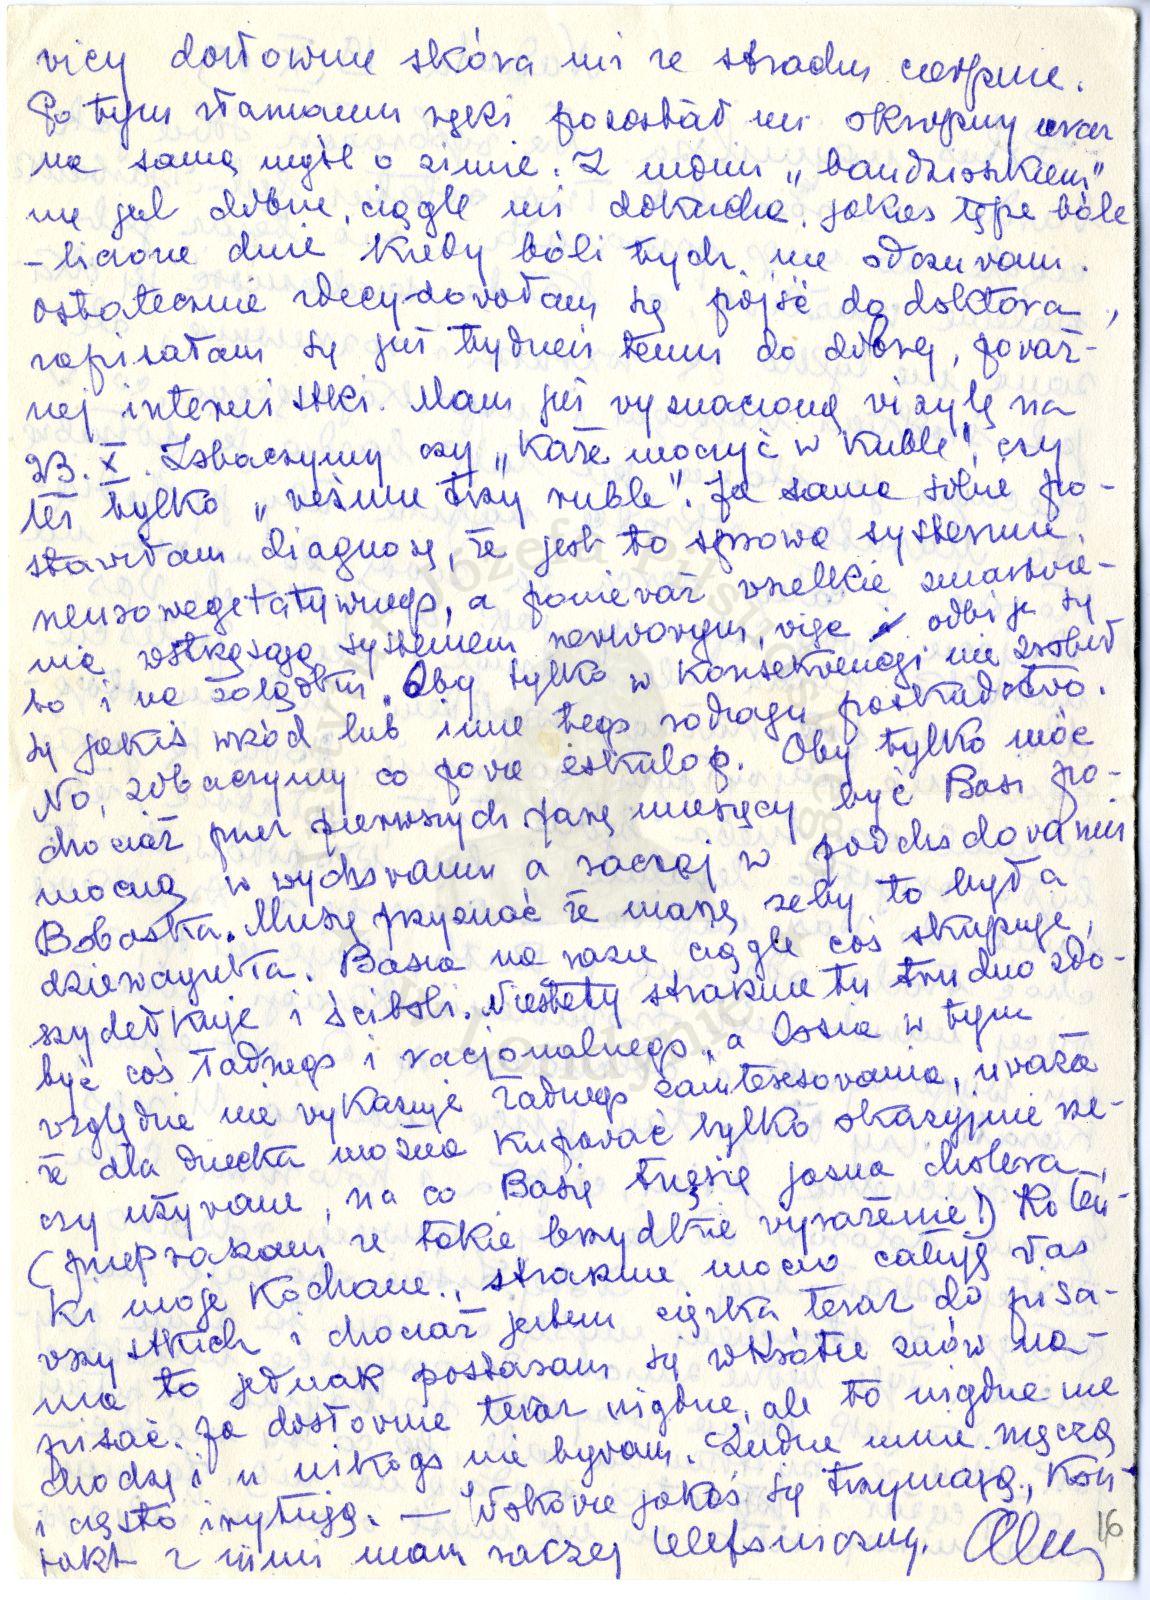 vicy dosłownie skóra mi ze strachu cierpnie.
Po tym złamaniu ręki pozostał mi okropny uraz
na samą myśl o zimie. Z moim „bandzioszkiem"
nie jest dobrze, ciągle mi dokucha, jakieś tępe bóle
– liczone dnie kiedy bóli tych nie odczuwam.
Ostatecznie zdecydowałam się pójść do doktora,
zapisałam się już tydzień temu do dobrej, poważ-
nej internistki. Mam już wyznaczoną wizytę na
23. X. Zobaczymy czy „Każe moczyć w Kuble", czy
też tylko „weźmie trzy ruble". Ja sama sobie po-
stawiłam diagnozę, że jest to sprawa systemu
neurowegetatywnego, a ponieważ wszelkie zmartwie-
nia wstrząsają systemem nerwowym, więc odbija się
to i na żołądku. Oby tylko w konsekwencji nie zrobił
się jakiś wrzód lub inne tego rodzaju paskudztwo.
No, zobaczymy co powie eskulap. Oby tylko móc
chociaż przez pierwszych parę miesięcy być Basi po-
mocną w wychowaniu a raczej w podchodowaniu
Bobaska. Muszę przyznać że marzę żeby to była
dziewczynka. Basia na razie ciągle coś skupuje,
szydełkuje i ściboli. Niestety strasznie tu trudno zdo-
być coś ładnego i racjonalnego, a Ossia w tym
względzie nie wykazuje żadnego zainteresowania, uważa
że dla dziecka można kupować tylko okazyjnie rze-
czy używane, na co Basię trzęsie jasna cholera
(przepraszam za takie brzydkie wyrażenie!) Koteń-
ki moje Kochane, strasznie mocno całuję Was
wszystkich i chociaż jestem ciężka teraz do pisa-
nia to jednak postaram się wkrótce znów na-
pisać. Ja dosłownie teraz nigdzie, ale to nigdzie nie
chodzę i u nikogo nie bywam. Ludzie mnie męczą
i często irytują. — Wskowie jakoś się trzymają, Kon-
takt z nimi mam raczej telefoniczny.
16